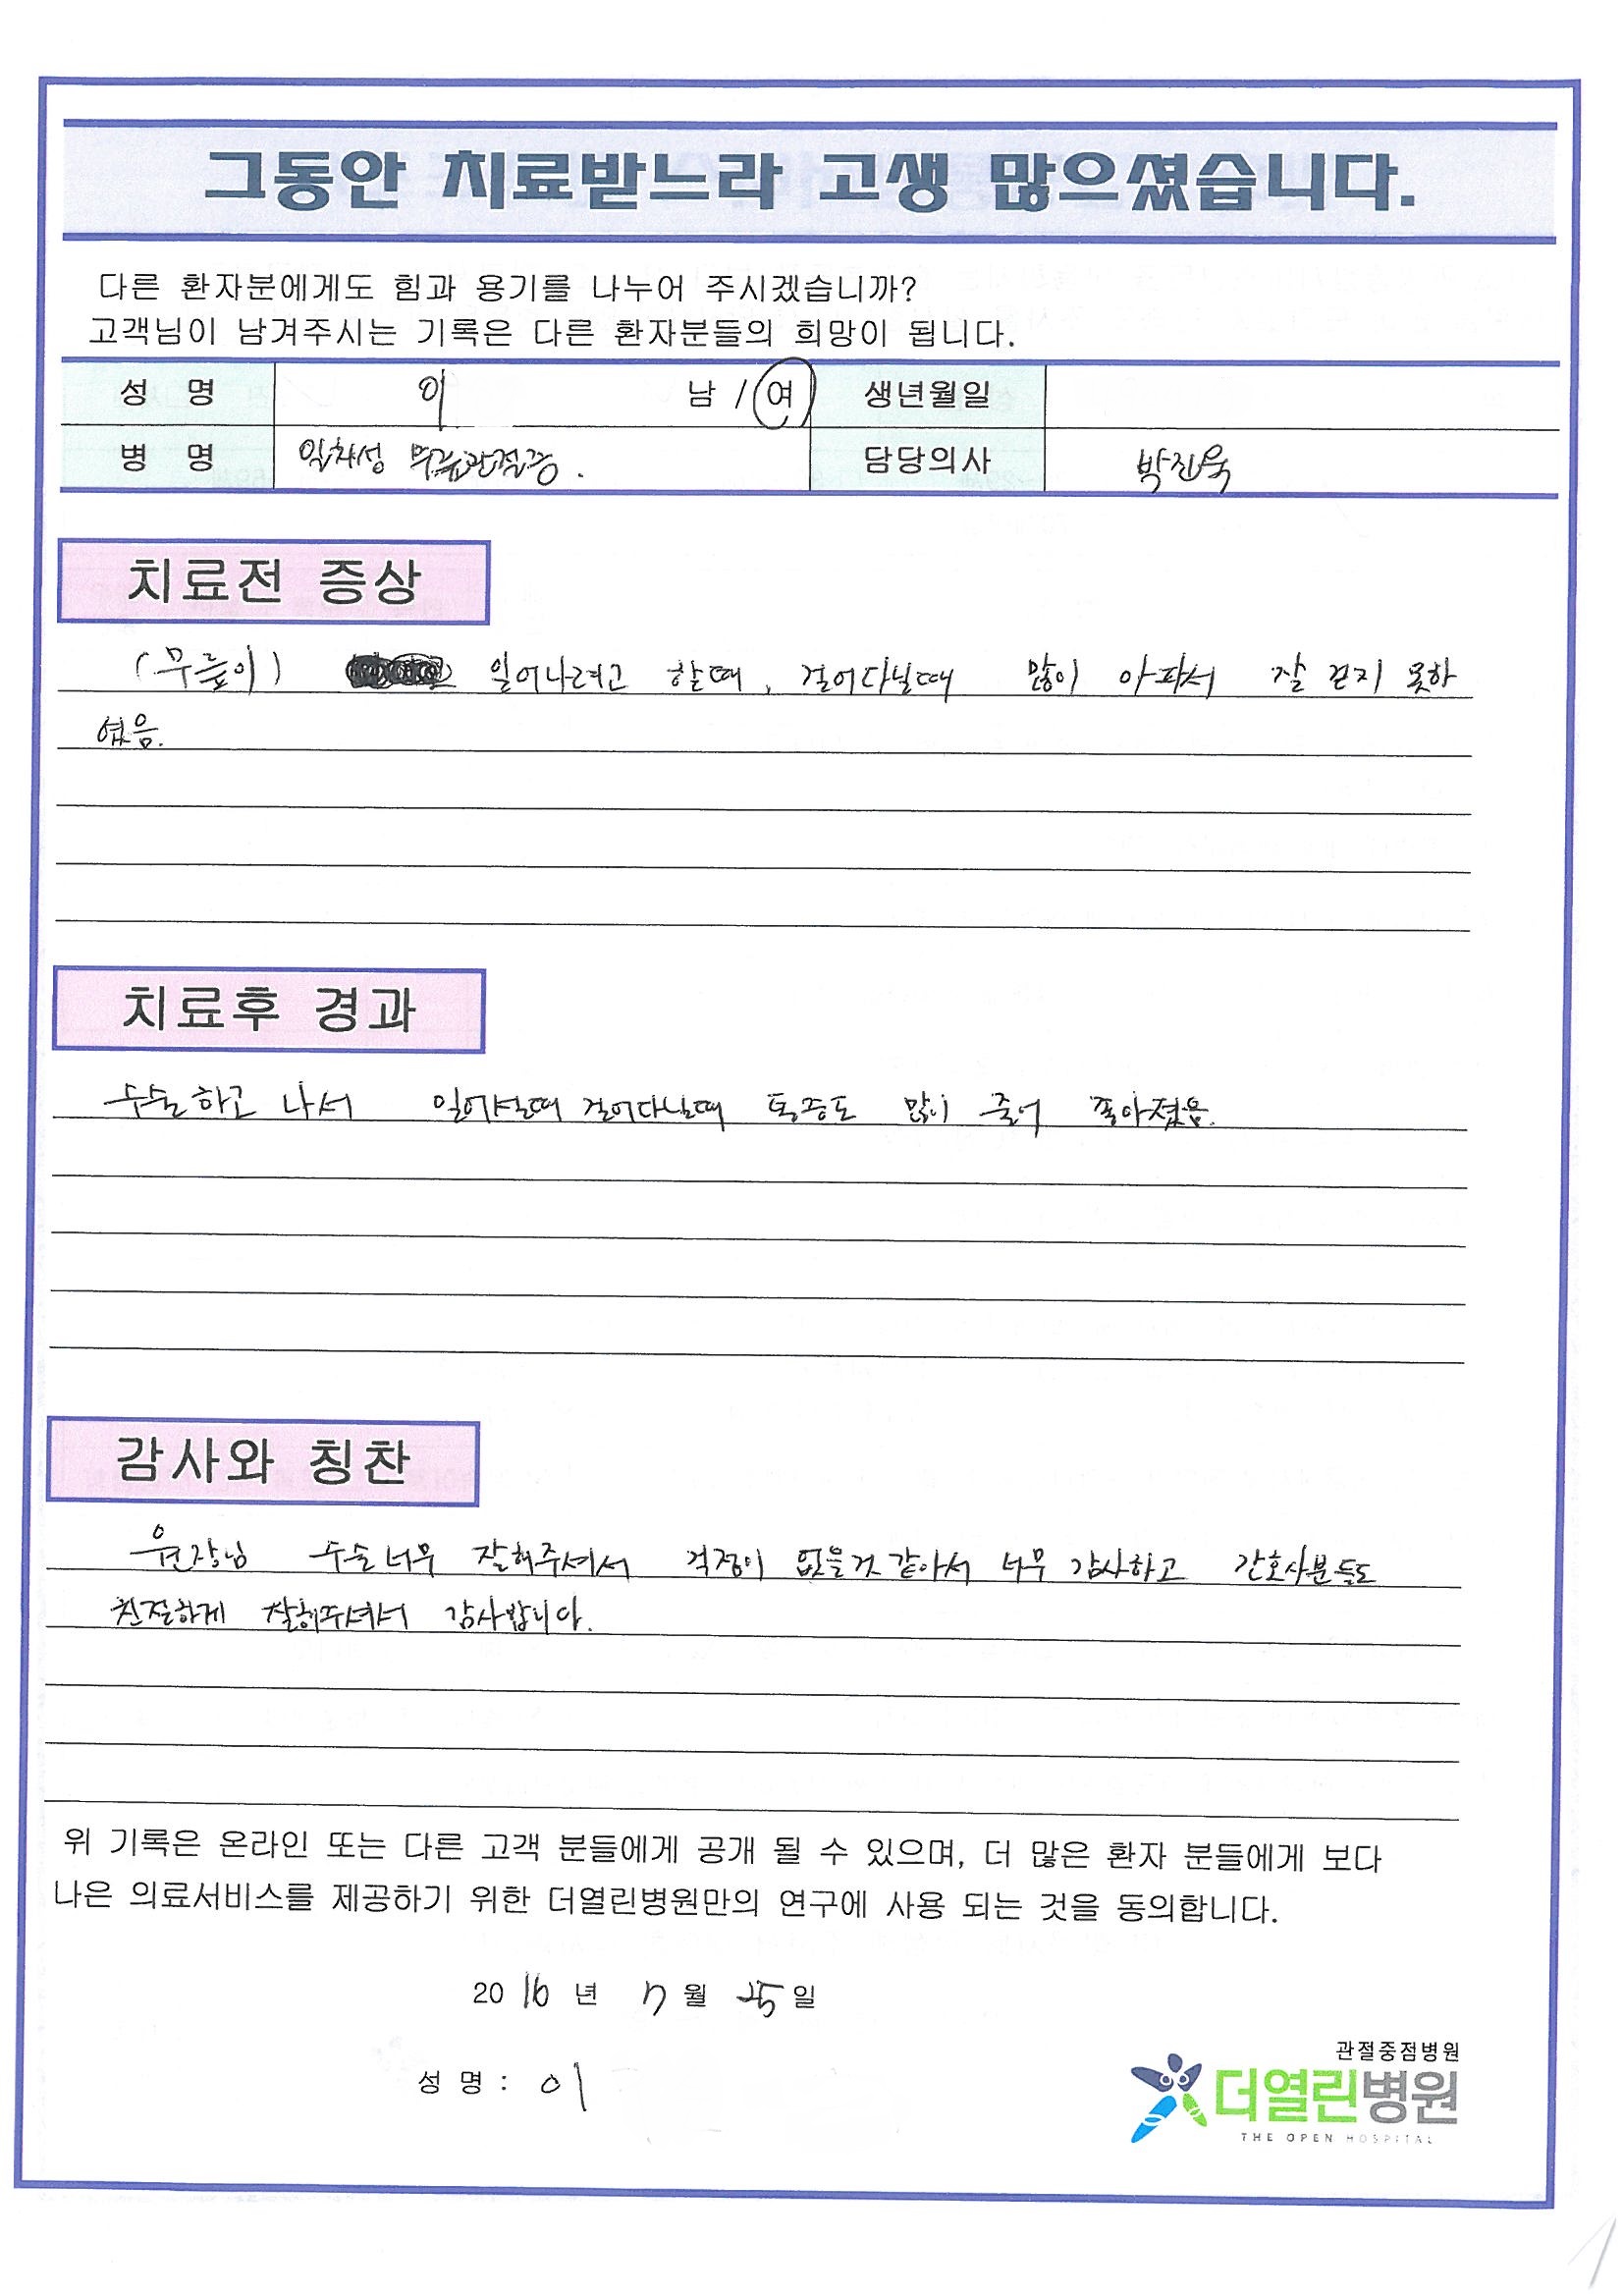 그동안 치료받느라 고생 많으셨습니다.
다른 환자분에게도 힘과 용기를 나누어 주시겠습니까?
고객님이 남겨주시는 기록은 다른 환자분들의 희망이 됩니다.
성 명 이 남 / 여 생년월일
병 명 일차성 무릎관절증. 담당의사 박진욱
치료전 증상
(무릎이) 일어나려고 할때, 걸어다닐때 많이 아파서 잘 걷지 못하
였음.
치료후 경과
수술하고 나서 일어설때 걸어다닐때 통증도 많이 줄어 좋아졌음.
감사와 칭찬
원장님 수술너무 잘해주셔서 걱정이 없을것 같아서 너무 감사하고 간호사분들도
친절하게 잘해주셔서 감사합니다.
위 기록은 온라인 또는 다른 고객 분들에게 공개 될 수 있으며, 더 많은 환자 분들에게 보다
나은 의료서비스를 제공하기 위한 더열린병원만의 연구에 사용 되는 것을 동의합니다.
2016 년 7 월 25 일
관절중점병원
성 명 : 이
더열린병원
THE OPEN HOSPITAL